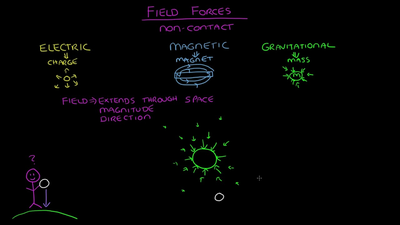 FIELD FORCES
NON-CONTACT
ELECTRIC
MAGNETIC
GRAVITATIONAL
CHARGE
MAGNET
MASS
M
FIELD ⇒ EXTENDS THROUGH SPACE
MAGNITUDE
DIRECTION
?